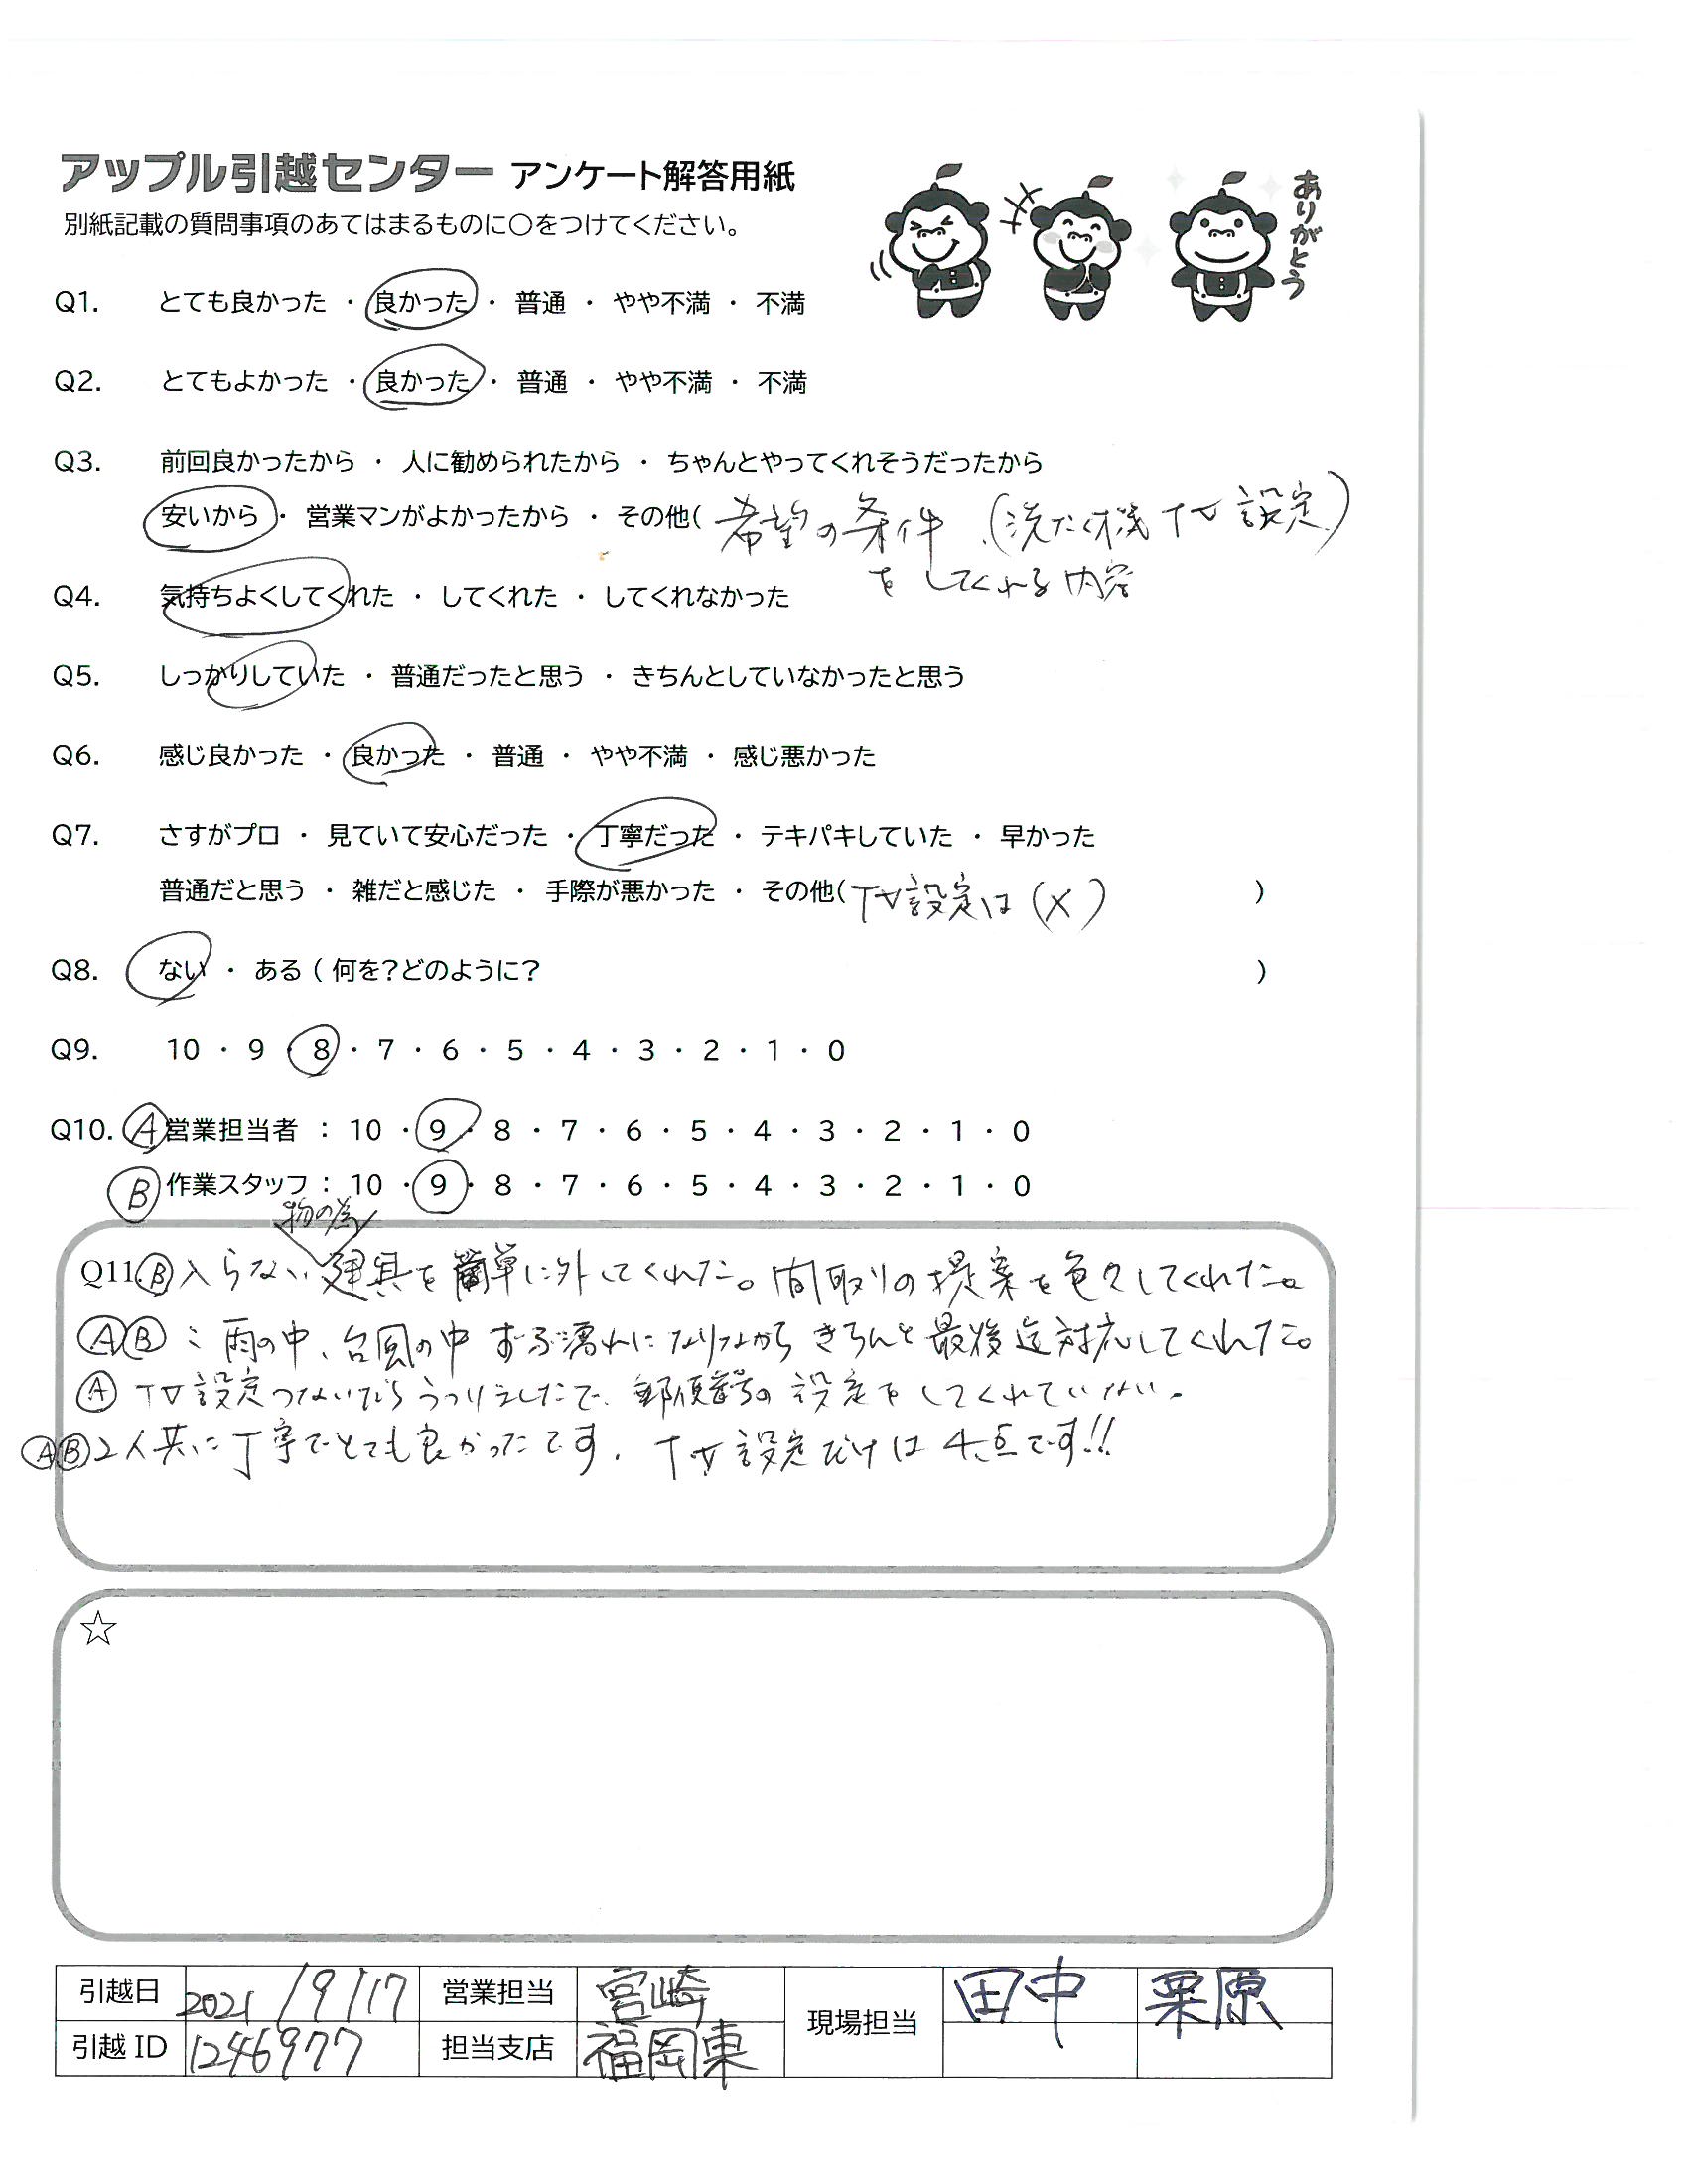 アップル引越センター アンケート解答用紙
別紙記載の質問事項のあてはまるものに〇をつけてください。
ありがとう
Q1. とても良かった ・ 良かった ・ 普通 ・ やや不満 ・ 不満
Q2. とてもよかった ・ 良かった ・ 普通 ・ やや不満 ・ 不満
Q3. 前回良かったから ・ 人に勧められたから ・ ちゃんとやってくれそうだったから
安いから ・ 営業マンがよかったから ・ その他( 希望の条件、(洗たく機 TV 設定)
をしてくれる内容
Q4. 気持ちよくしてくれた ・ してくれた ・ してくれなかった
Q5. しっかりしていた ・ 普通だったと思う ・ きちんとしていなかったと思う
Q6. 感じ良かった ・ 良かった ・ 普通 ・ やや不満 ・ 感じ悪かった
Q7. さすがプロ ・ 見ていて安心だった ・ 丁寧だった ・ テキパキしていた ・ 早かった
普通だと思う ・ 雑だと感じた ・ 手際が悪かった ・ その他( TV設定は (X) )
Q8. ない ・ ある ( 何を?どのように? )
Q9. 10 ・ 9 ・ 8 ・ 7 ・ 6 ・ 5 ・ 4 ・ 3 ・ 2 ・ 1 ・ 0
Q10. A 営業担当者 : 10 ・ 9 ・ 8 ・ 7 ・ 6 ・ 5 ・ 4 ・ 3 ・ 2 ・ 1 ・ 0
B 作業スタッフ : 10 ・ 9 ・ 8 ・ 7 ・ 6 ・ 5 ・ 4 ・ 3 ・ 2 ・ 1 ・ 0
物の為
Q11 B 入らない建具を簡単に外してくれた。間取りの提案を色々してくれた。
A B : 雨の中、台風の中 ずぶ濡れになりながらきちんと最後迄対応してくれた。
A TV設定つないだらうつりましたで、郵便番号の設定をしてくれていない。
A B 2人共に丁寧でとても良かったです. TV設定だけは4点です!!
☆
引越日 2021/9/17 営業担当 宮崎 現場担当 田中 栗原
引越ID 1246977 担当支店 福岡東